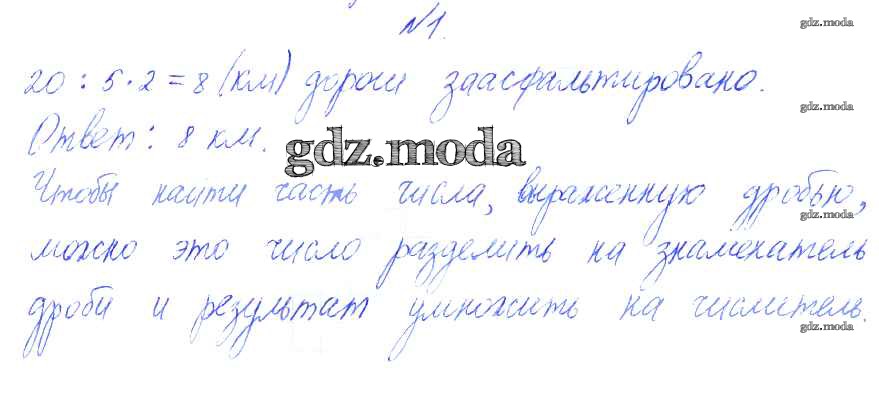 №1.
gdz.moda
20 : 5 · 2 = 8 (км) дороги заасфальтировано.
gdz.moda
Ответ: 8 км.
gdz.moda
Чтобы найти часть числа, выраженную дробью,
gdz.moda
можно это число разделить на знаменатель
дроби и результат умножить на числитель.
gdz.moda